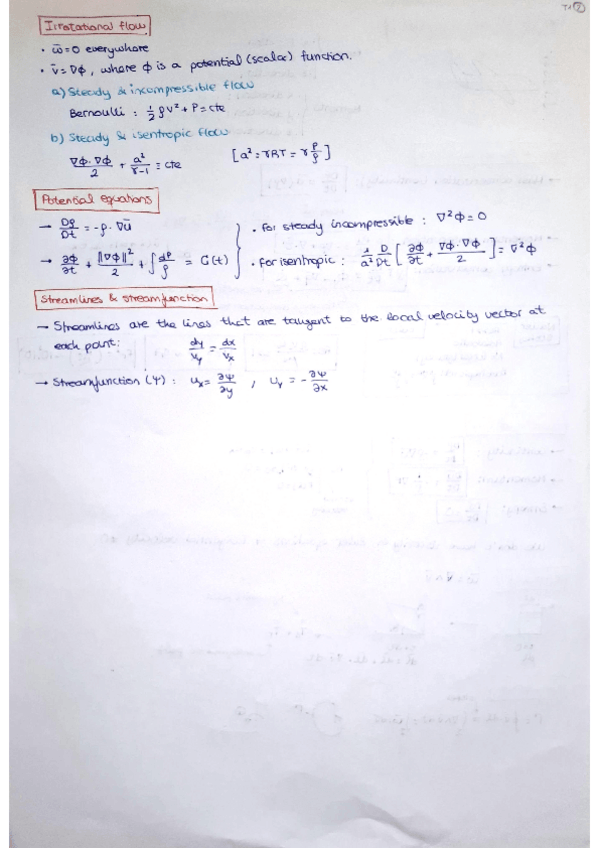 T1 2
Irrotational flow
· ω̄=0 everywhere
· v̄=∇ϕ, where ϕ is a potential (scalar) function.
a) Steady & incompressible flow
Bernoulli : 1/2 ρv² + P = cte
b) Steady & isentropic flow
∇ϕ·∇ϕ/2 + a²/γ-1 = cte [a² = γRT = γ P/ρ]
Potential equations
→ Dρ/Dt = -ρ·∇ū
· for steady incompressible : ∇²ϕ=0
→ ∂ϕ/∂t + ‖∇ϕ‖²/2 + ∫dp/ρ = G(t)
· for isentropic : 1/a² D/Dt [∂ϕ/∂t + ∇ϕ·∇ϕ/2] = ∇²ϕ
Streamlines & streamfunction
→ Streamlines are the lines that are tangent to the local velocity vector at
each point: dy/vy = dx/vx
→ Streamfunction (ψ) : ux = ∂ψ/∂y , uy = -∂ψ/∂x